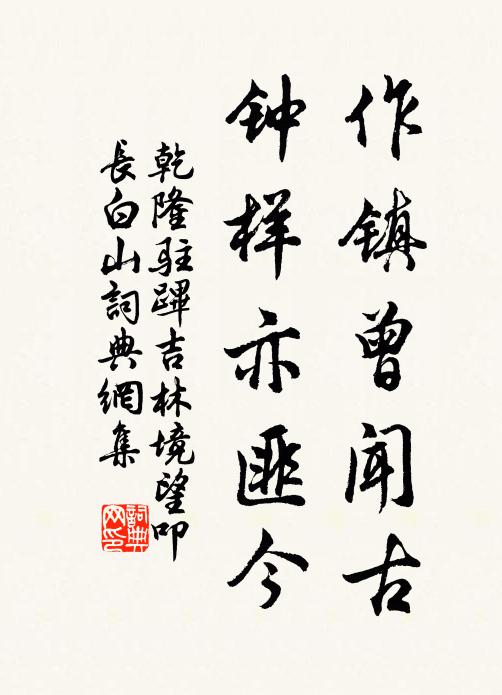 作镇曾闻古
钟样亦匪今
乾隆驻蹕吉林境望叩
長白山詞典網集
詞典
网印